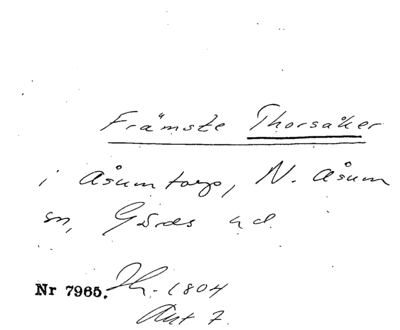 Främste Thorsåker
i Åsumtorp, N. Åsum
sn, Gärds hd.
Nr 7965. Th. 1804
Ant 7.